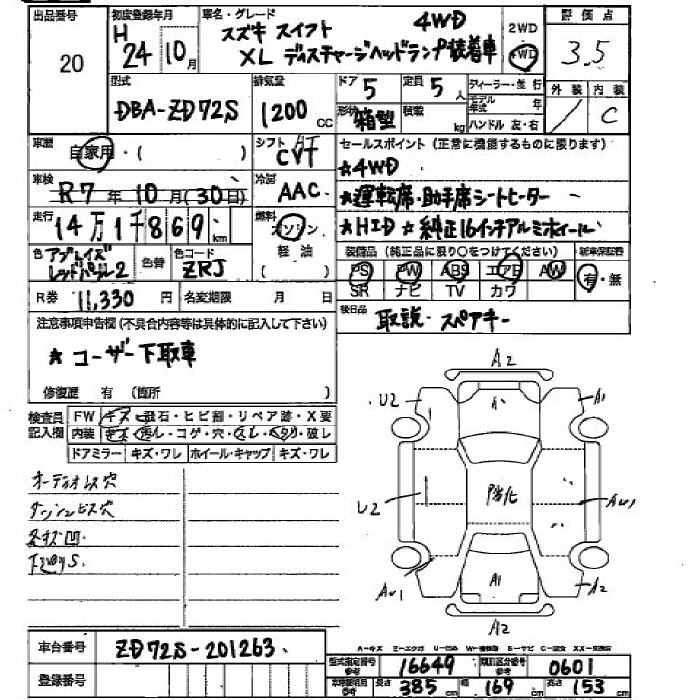 出品番号 20
初度登録年月 H 24年 10月
車名・グレード スズキ スイフト 4WD
XL ディスチャージヘッドランプ装着車
2WD 4WD
評価点 3.5
外装 内装 C
型式 DBA-ZD72S
排気量 1200 CC
ドア 5
定員 5人
形状 箱型
積載 kg
ディーラー・並行
モデル年式 年
ハンドル 左・右
車歴 自家用・( )
シフト AT CVT
セールスポイント (正常に機能するものに限ります)
★4WD
★運転席・助手席シートヒーター
★HID ★純正16インチアルミホイール
車検 R7年 10月(30日)
冷房 AAC
走行 14万1千869 km
燃料 ガソリン 軽油 ( )
色 アブレイズレッドパール2
色替
色コード ZRJ
装備品 (純正品に限り○をつけてください)
PS PW ABS エアB AW
SR ナビ TV カワ
新車保証書 有・無
R券 11,330 円
名変期限 月 日
後日品 取説・スペアキー
注意事項申告欄 (不具合内容等は具体的に記入して下さい)
★ユーザー下取車
修復歴 有 (箇所 )
検査員記入欄
FW キズ・飛石・ヒビ割・リペア跡・X要
内装 キズ・汚レ・コゲ・穴・スレ・ヘタリ・破レ
ドアミラー キズ・ワレ ホイール・キャップ キズ・ワレ
オーディオレス穴
ダッシュビス穴
下廻りS
A2
U2
A1
A
U2
防化
AW1
AW1
A1
A2
A2
車台番号 ZD72S-201263
登録番号
型式指定番号 16649
類別区分番号 0601
長さ 385 cm 幅 169 cm 高さ 153 cm